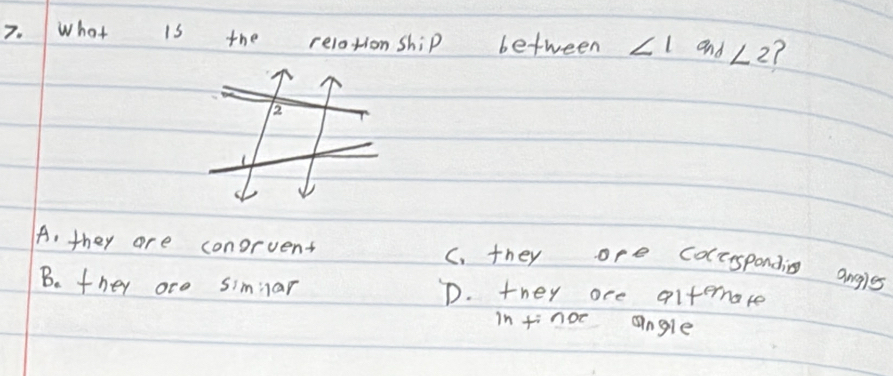 7. What is the relationship between ∠1 and ∠2?
2
1
A. they are congruent
B. they are similar
C. they are corresponding angles
D. they are alternate
in ti nor angle